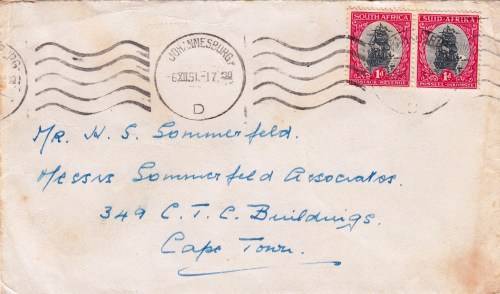 JOHANNESBURG
6XII.51.-17
D
SOUTH AFRICA
1D
POSTAGE-REVENUE
SUID-AFRIKA
1D
POSSEEL-INKOMSTE
D
Mr. H. S. Sommerfeld.
Messrs Sommerfeld Associates.
349 C.T.C. Buildings.
Cape Town.